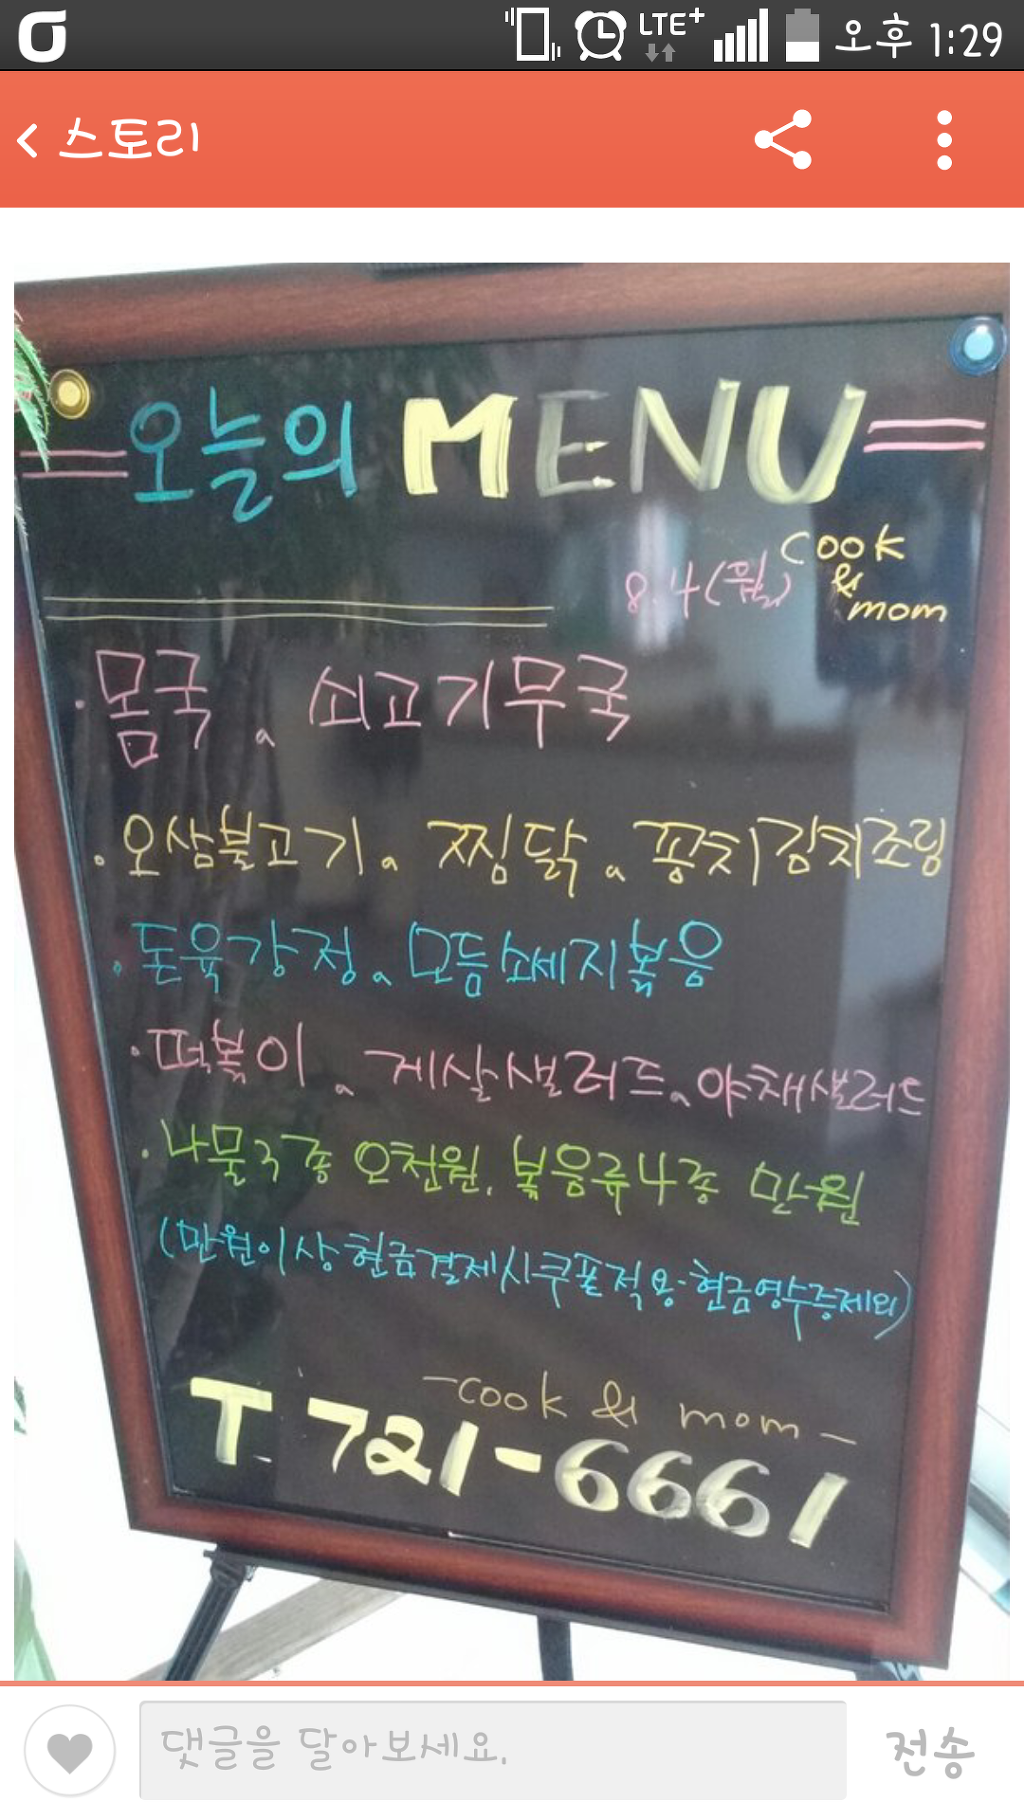 LTE+ 오후 1:29
스토리
오늘의 MENU
8.4(월) cook
&
mom
·몸국、쇠고기무국
·오삼불고기、찜닭、꽁치김치조림
·돈육강정、모듬소세지볶음
·떡볶이、게살샐러드、야채샐러드
·나물3종 오천원, 볶음류4종 만원
(만원이상현금결제시쿠폰적용·현금영수증제외)
-cook & mom-
T. 721-6661
댓글을 달아보세요.
전송